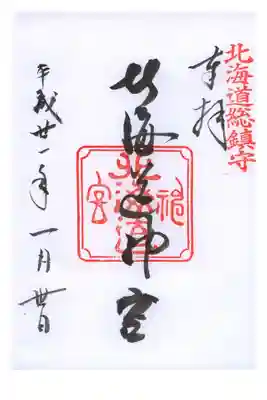 北海道総鎮守
奉拝
北海道神宮
北海道神宮
平成廿一年一月卅日